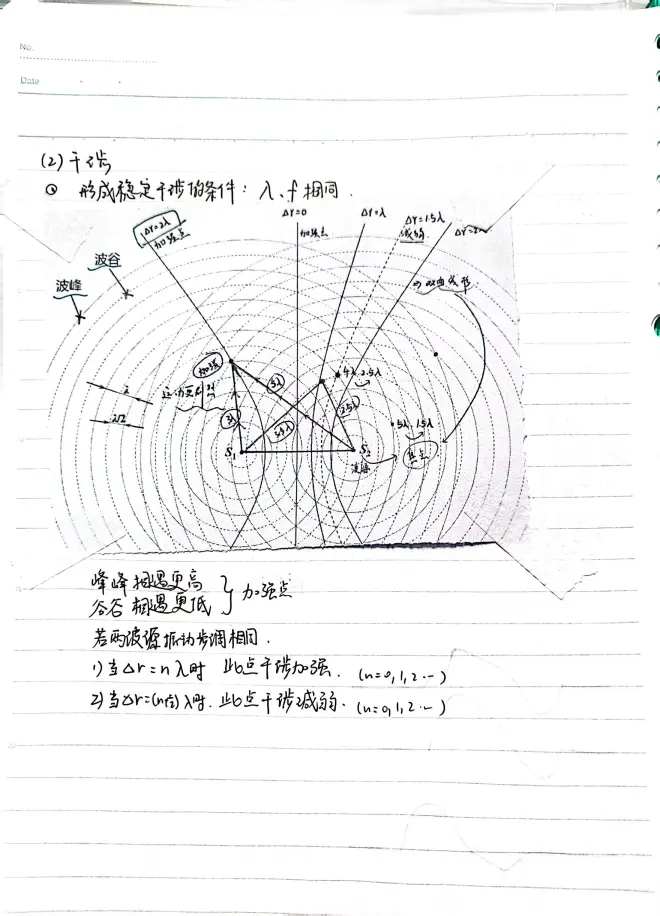 No.
Date
(2) 干涉
① 形成稳定干涉的条件: λ、f 相同.
Δr=2λ
加强点
Δr=0
加强点
Δr=λ
Δr=1.5λ
减弱
波谷
波峰
⇒ 双曲线形
加强
3λ
4λ, 2.5λ
λ
λ/2
2.5λ
5λ, 1.5λ
S₁
S₂
波源
焦点
峰峰相遇更高
谷谷相遇更低
加强点
若两波源振动步调相同.
1) 当Δr=nλ时 此点干涉加强. (n=0,1,2…)
2) 当Δr=(n+½)λ时. 此点干涉减弱. (n=0,1,2…)